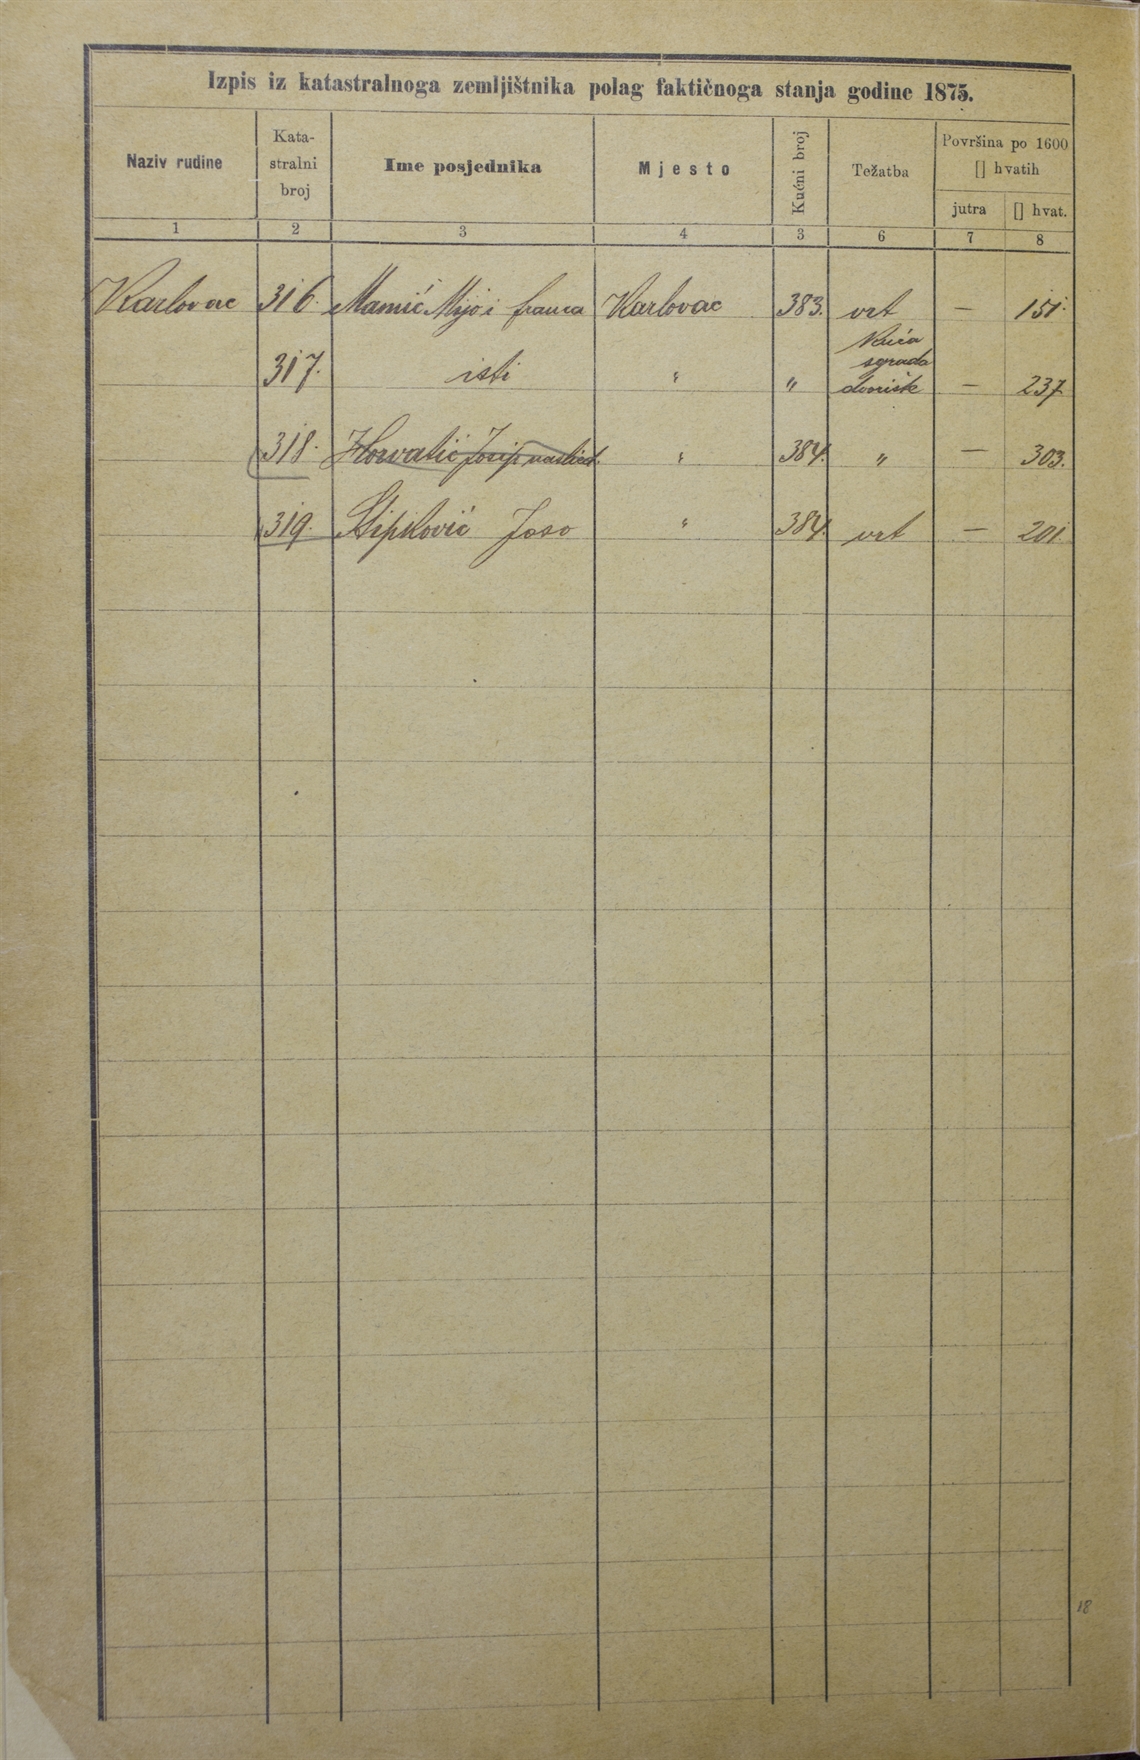 Izpis iz katastralnoga zemljištnika polag faktičnoga stanja godine 1875.
Naziv rudine
Kata-
stralni
broj
Ime posjednika
Mjesto
Kućni broj
Težatba
Površina po 1600
[] hvatih
jutra
[] hvat.
1 2 3 4 3 6 7 8
Karlovac 316. Mamić Mijo i franca Karlovac 383. vrt — 151.
317. isti " " Kuća
sgrada
dvorišt — 237
318. Horvatić Josip " 384. " — 303.
319. Stipković Joso " 384. vrt — 201
18